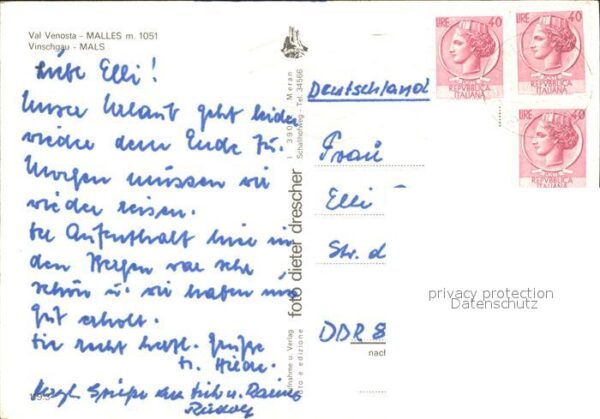 Val Venosta - MALLES m. 1051
Vinschgau - MALS
Liebe Elli!
Unser Urlaub geht leider
wieder dem Ende zu.
Morgen müssen wir
wieder reisen.
Der Aufenthalt hier in
den Bergen war sehr
schön u. wir haben uns
gut erholt.
Sie recht herzl. Grüße
Fr. Heide.
Herzl. Grüße
Rudolf
foto dieter drescher
Meran
Schallhofweg - Tel. 34566
Aufnahme u. Verlag
foto e edizione
LIRE 40
REPVBBLICA
ITALIANA
LIRE 40
REPVBBLICA
ITALIANA
LIRE 40
REPVBBLICA
ITALIANA
Deutschland
Frau
Elli
Str. d
DDR 8
nach
privacy protection
Datenschutz